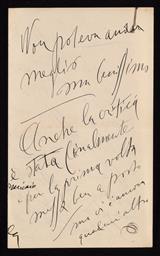 Non poteva andar
meglio
ma benissimo
Anche la critica
è stata finalmente
per la prima volta
messa ben a posto
ma vi è ancora
qualcun'altro